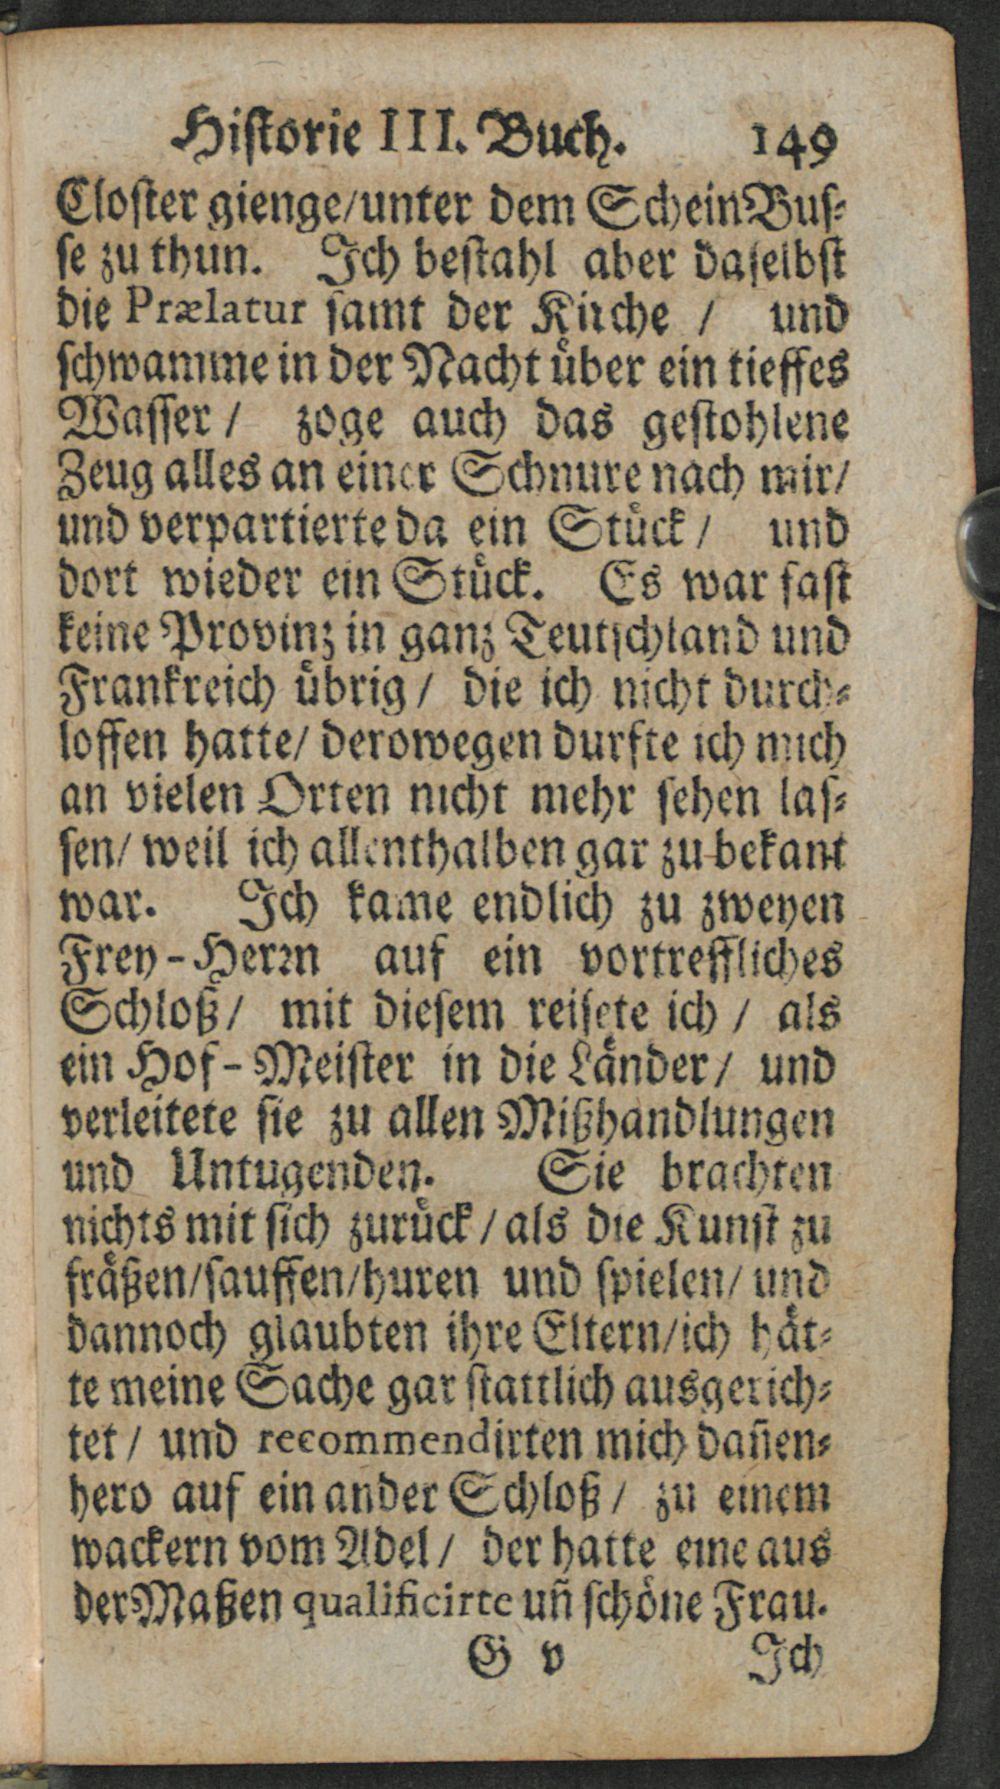 Hiſtorie III. Buch. 149
Cloſter gienge/unter dem Schein Buſ⸗
ſe zu thun. Ich beſtahl aber daſelbſt
die Prælatur ſamt der Kirche / und
ſchwamme in der Nacht uͤber ein tieffes
Waſſer / zoge auch das geſtohlene
Zeug alles an einer Schnure nach mir/
und verpartierte da ein Stuͤck / und
dort wieder ein Stuͤck. Es war faſt
keine Provinz in ganz Teutſchland und
Frankreich uͤbrig / die ich nicht durch⸗
loffen hatte/ derowegen durfte ich mich
an vielen Orten nicht mehr ſehen laſ⸗
ſen/ weil ich allenthalben gar zu bekant
war. Ich kame endlich zu zweyen
Frey-Herꝛn auf ein vortreffliches
Schloß/ mit dieſem reiſete ich / als
ein Hof-Meiſter in die Laͤnder/ und
verleitete ſie zu allen Mißhandlungen
und Untugenden. Sie brachten
nichts mit ſich zuruͤck / als die Kunſt zu
fraͤßen/ſauffen/huren und ſpielen/ und
dannoch glaubten ihre Eltern/ich haͤt⸗
te meine Sache gar ſtattlich ausgerich⸗
tet / und recommendirten mich dan̄en⸗
hero auf ein ander Schloß / zu einem
wackern vom Adel / der hatte eine aus
der Maßen qualificirte un̄ ſchoͤne Frau.
G v Ich